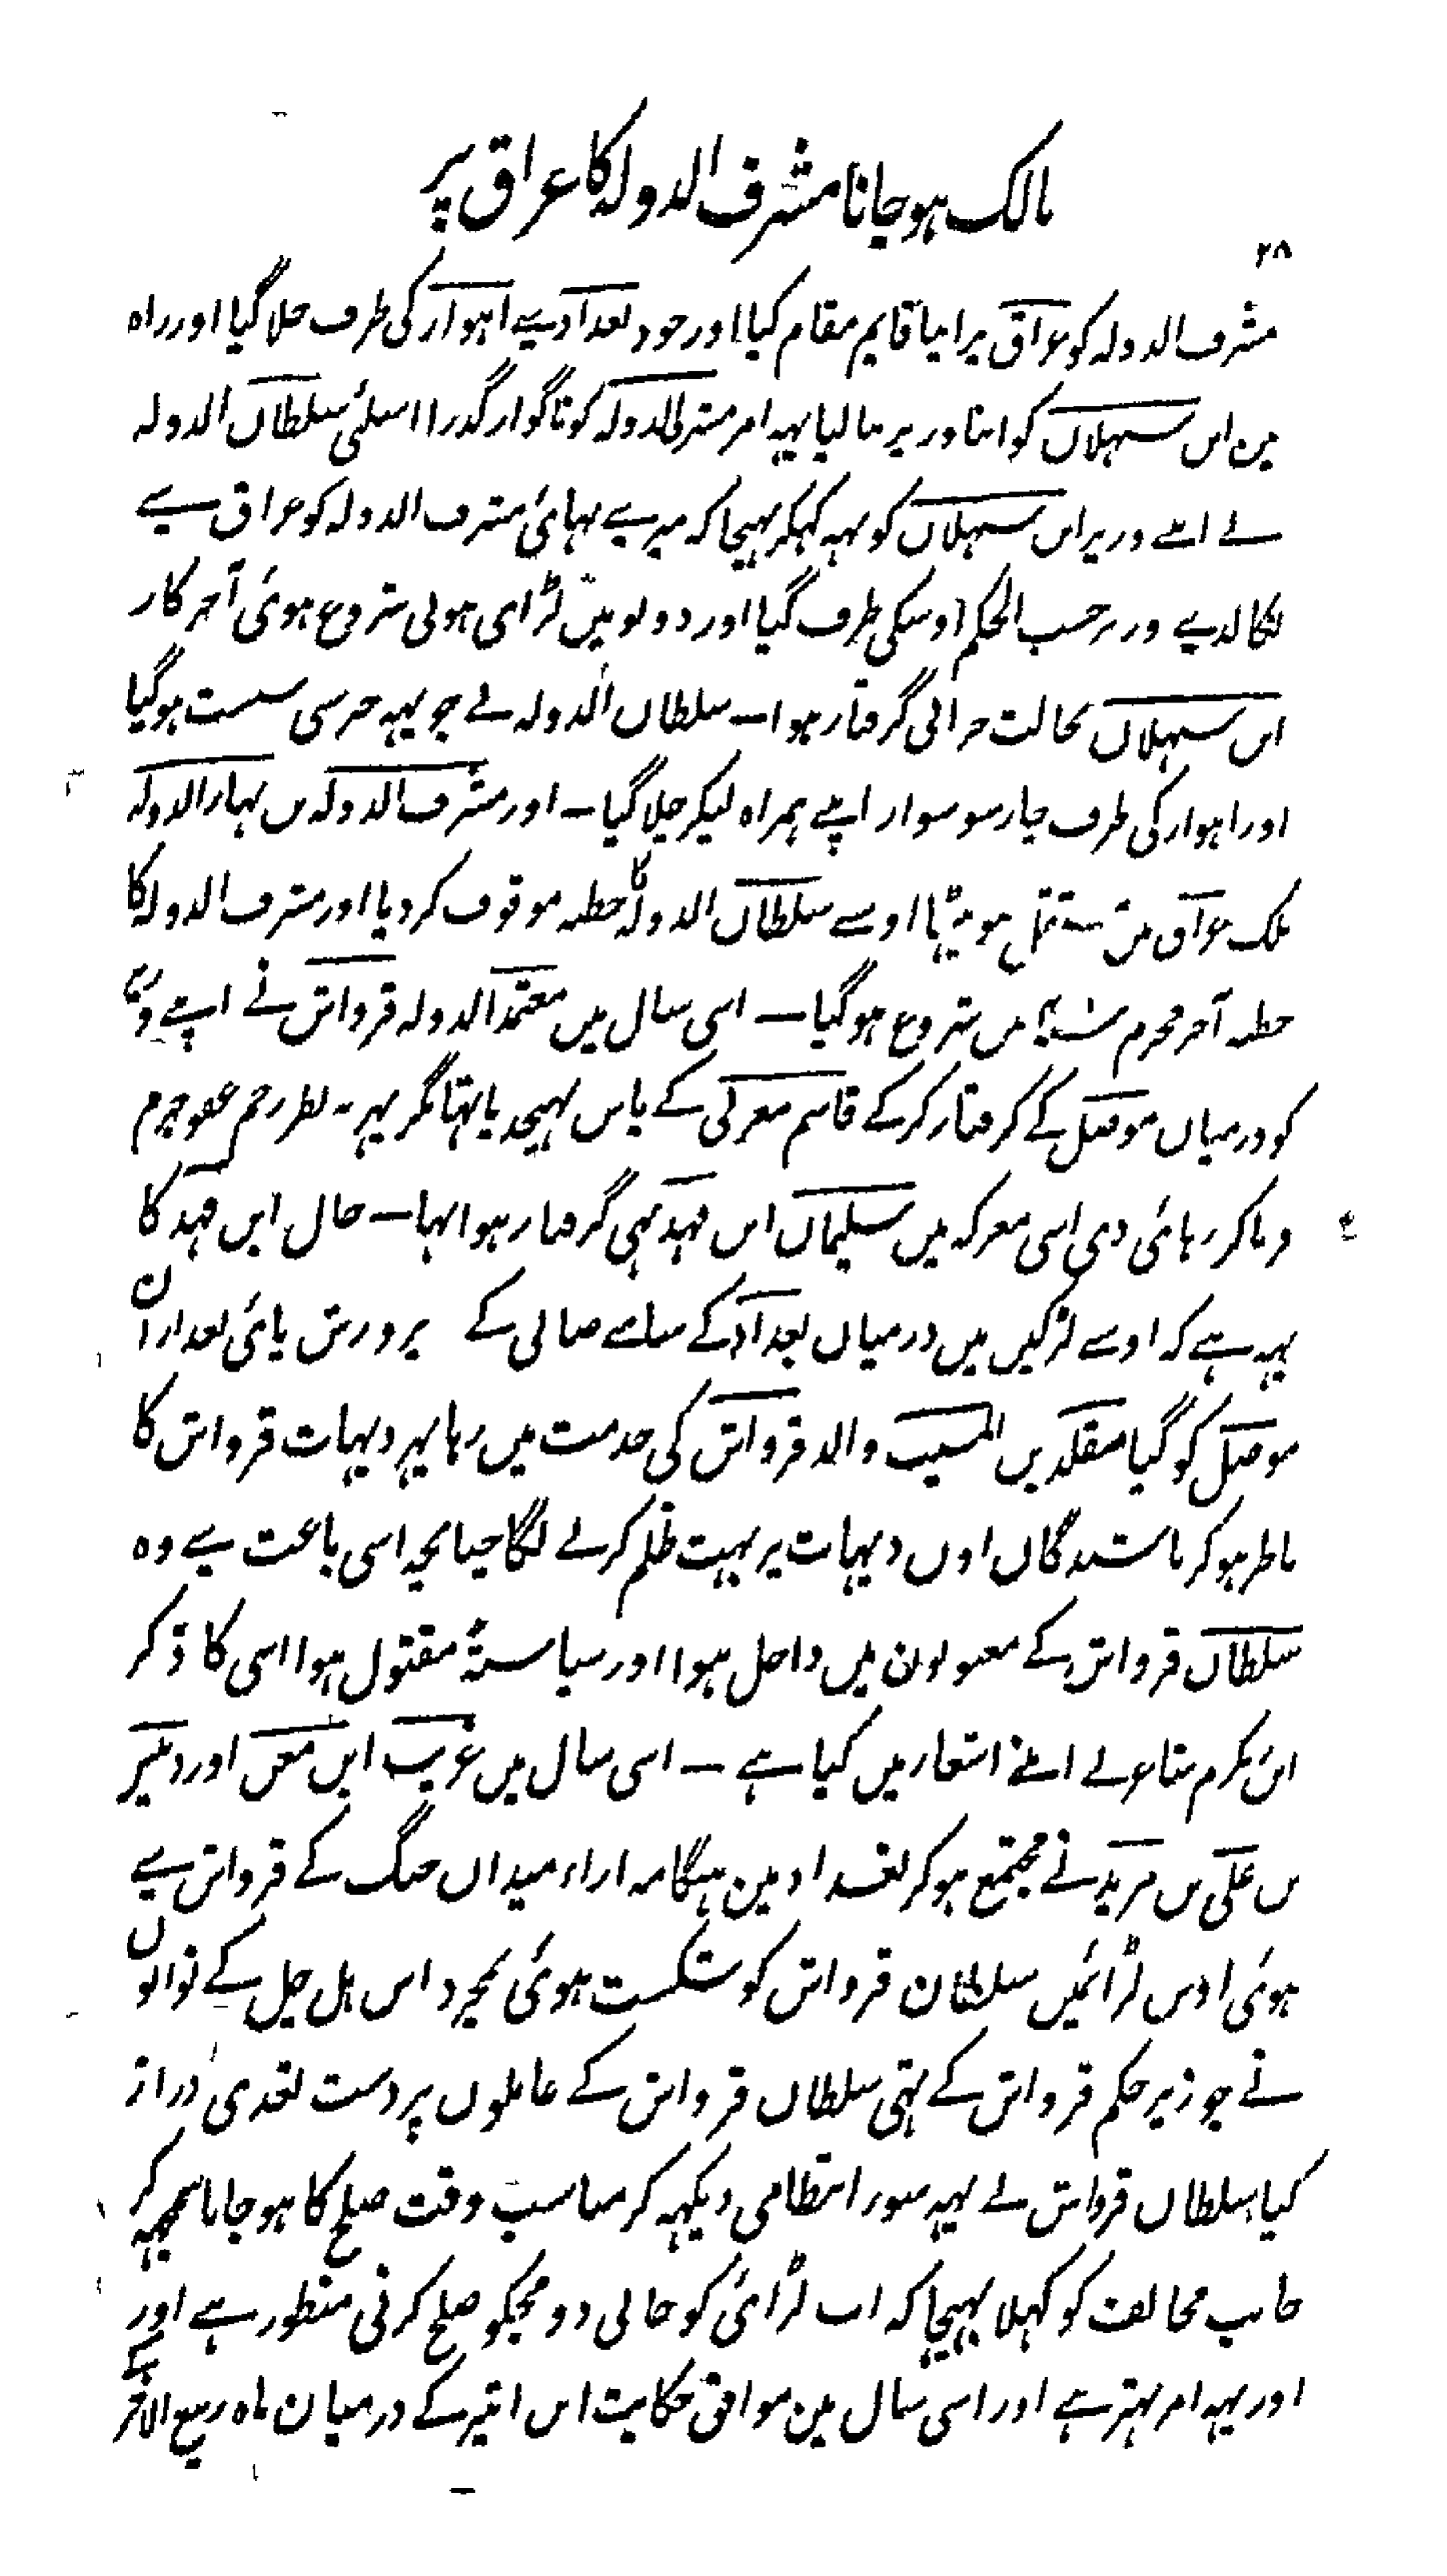 مالک ہوجانا مشرف الدولہ کا عراق پر
۲۸
مشرف الدولہ کو عراق پر اپنا قایم مقام کیا اور خود بغداد سے اہواز کی طرف چلا گیا اور راہ
مین ابن سہلان کو اپنا وزیر بنا لیا یہہ امر مشرف الدولہ کو ناگوار گذرا اسلئے سلطان الدولہ
نے اپنے وزیر ابن سہلان کو یہہ کہکر بہیجا کہ میرے بہائی مشرف الدولہ کو عراق سے
نکالدے وزیر حسب الحکم اوسکی طرف گیا اور دونو میں لڑائی ہونی شروع ہوئی آخر کار
ابن سہلان بحالت خرابی گرفتار ہوا ــ سلطان الدولہ نے جو یہہ خبر سنی سست ہوگیا
اور اہواز کی طرف چار سو سوار اپنے ہمراہ لیکر چلا گیا ــ اور مشرف الدولہ بن بہار الدولہ
ملک عراق میں مستقل ہو بیٹہا اوسنے سلطان الدولہ کا خطبہ موقوف کر دیا اور مشرف الدولہ کا
خطبہ آخر محرم میں شروع ہوگیا ــ اسی سال میں معتمد الدولہ قرواش نے اپنے وزیر
کو درمیان موصل کے گرفتار کرکے قاسم مغربی کے پاس بہیجدیا تہا مگر پہر بہ نظر رحم عفو جرم
فرماکر رہائی دی اسی معرکہ میں سلیمان ابن فہد بہی گرفتار ہوا تہا ــ حال ابن فہد کا
یہہ ہے کہ اوسنے لڑکپن میں درمیان بغداد کے سامنے صابی کے پرورش پائی بعد ازان
موصل کو گیا مقلد بن المسیب والد قرواش کی خدمت میں رہا پہر دیہات قرواش کا
ناظر ہوکر باشندگان اون دیہات پر بہت ظلم کرنے لگا چنانچہ اسی باعث سے وہ
سلطان قرواش کے میں داخل ہوا اور سیاستہً مقتول ہوا اسی کا ذکر
ابن مکرم شاعر نے اپنے اشعار میں کیا ہے ــ اسی سال میں غریب ابن معن اور دبیس
بن علی بن مزید نے مجتمع ہوکر بغداد مین ہنگامہ اراء میدان جنگ کے قرواش سے
ہوئی اوس لڑائیمیں سلطان قرواش کو شکست ہوئی بمجرد اس ہل چل کے نوابوں
نے جو زیر حکم قرواش کے تہی سلطان قرواش کے عاملوں پر دست تعدی دراز
کیا سلطان قرواش نے یہہ سوء انتظامی دیکہہ کر مناسب وقت صلح کا ہو جانا سمجہہ کر
جانب مخالف کو کہلا بہیجا کہ اب لڑائی کو جانی دو مجکو صلح کرنی منظور ہے اور
اور یہہ امر بہتر ہے اور اسی سال مین موافق حکایت ابن اثیر کے درمیان ماہ ربیع الاخر کے